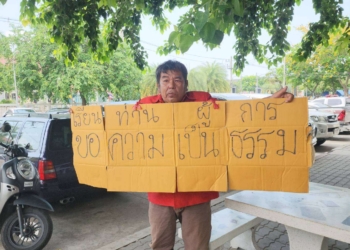 เรียน ท่าน ผู้ การ
ขอ ความ เป็น ธรรม